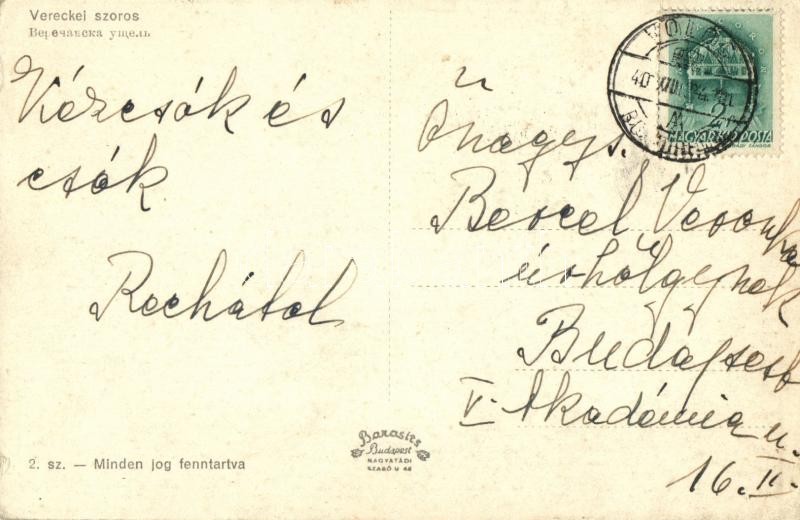 Vereckei szoros
Веречанска ущель
Kézcsók és
csók
Rochától
Önagys.
Bercel Veronka
úrhölgynek
Budapest
V. Akadémia u.
16. II.
MAGYAR KIR. POSTA
VOLÓC
40 XII
Barasits
Budapest
NAGYATÁDI
SZABÓ U 48
2. sz. — Minden jog fenntartva